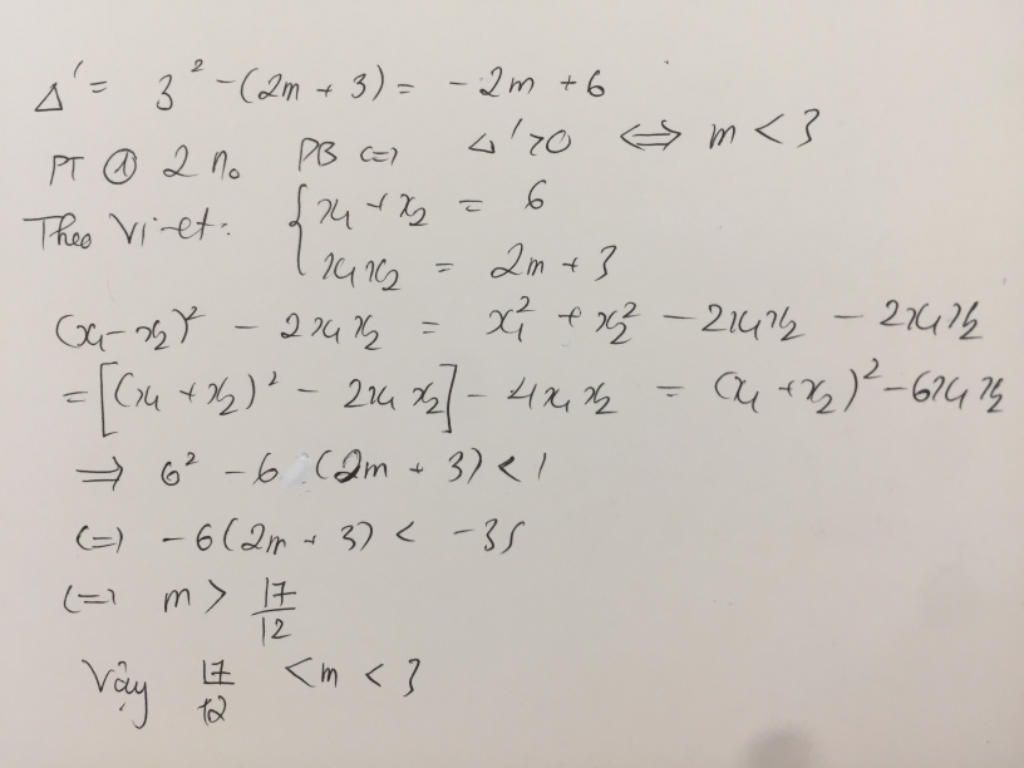 Δ' = 3² - (2m + 3) = - 2m + 6
PT ① 2 n₀ PB <=> Δ' > 0 <=> m < 3
Theo Vi-et: { x₁ + x₂ = 6
x₁x₂ = 2m + 3
(x₁ - x₂)² - 2x₁x₂ = x₁² + x₂² - 2x₁x₂ - 2x₁x₂
= [(x₁ + x₂)² - 2x₁x₂] - 4x₁x₂ = (x₁ + x₂)² - 6x₁x₂
=> 6² - 6 (2m + 3) < 1
<=> - 6(2m + 3) < -35
<=> m > 17/12
Vậy 17/12 < m < 3